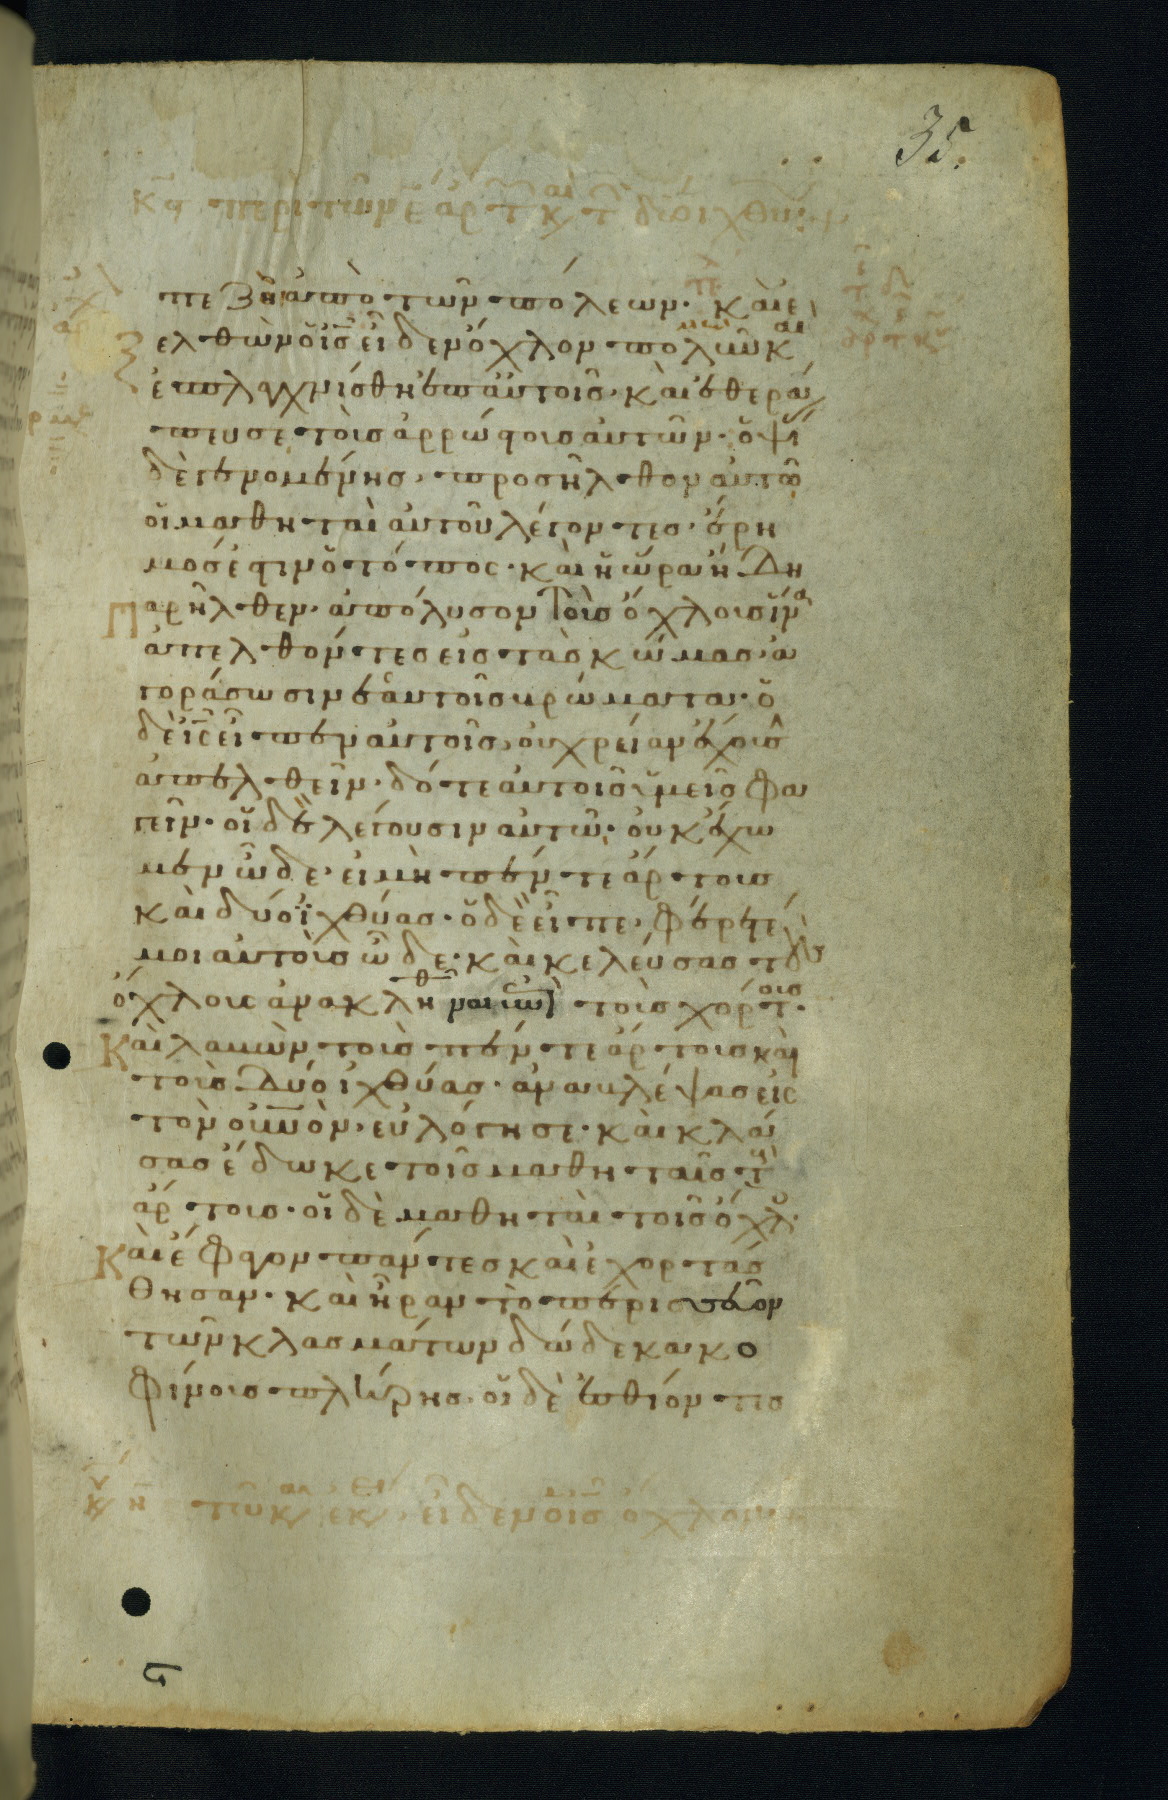 35.
κϛ περὶ τῶν ε ἀρτ κ τ δύο ἰχθύω
πεζῆ ἀπὸ τῶν πόλεων· καὶ ἐ
ξελθὼν ὁ ῑς̄ εἶδεν ὄχλον πολὺν καὶ
ἐσπλαγχνίσθη ἐπ αὐτοῖς· καὶ ἐθερά
πευσε τοὺς ἀρρώστους αὐτῶν· ὀψί
δὲ γενομένης, προσῆλθον αὐτῶ
οἱ μαθηταὶ αὐτοῦ λέγοντες· ἔρη
μός ἐστιν ὁ τόπος· καὶ ἡ ὥρα ἤδη
Παρῆλθεν· ἀπόλυσον τοὺς ὄχλους ἵνα
ἀπελθόντες εἰς τὰς κώμας· ἀ
γοράσωσιν ἑαυτοῖς βρώματα· ὁ
δὲ ῑς̄ εἶπεν αὐτοῖς, οὐ χρείαν ἔχουσ
ἀπελθεῖν· δότε αὐτοῖς ὑμεῖς φα
γεῖν· οἱ δὲ λέγουσιν αὐτῶ· οὐκ ἔχο
μεν ὧδε· εἰ μὴ πέντε ἄρτους
καὶ δύο ἰχθύας· ὁ δὲ εἶπε· φέρετέ
μοι αὐτοὺς ὧδε· καὶ κελεύσας τοὺς
ὄχλους ἀνακλιθῆναι ἐπὶ τοὺς χόρτους·
Καὶ λαβὼν τοὺς πέντε ἄρτους καὶ
τοὺς δύο ἰχθύας· ἀναβλέψας εἰς
τὸν οὐ̄νὸν, εὐλόγησε· καὶ κλά
σας ἔδωκε τοῖς μαθηταῖς τοὺς
ἄρτους· οἱ δὲ μαθηταὶ τοῖς ὄχλ·
Καὶ ἔφαγον πάντες καὶ ἐχορτάσ
θησαν· καὶ ἦραν τὸ περισσεῦον
τῶν κλασμάτων δώδεκα κο
φίνους πλήρης· οἱ δὲ ἐσθίοντες
εἶδεν ὁ ῑς̄ ὄχλον